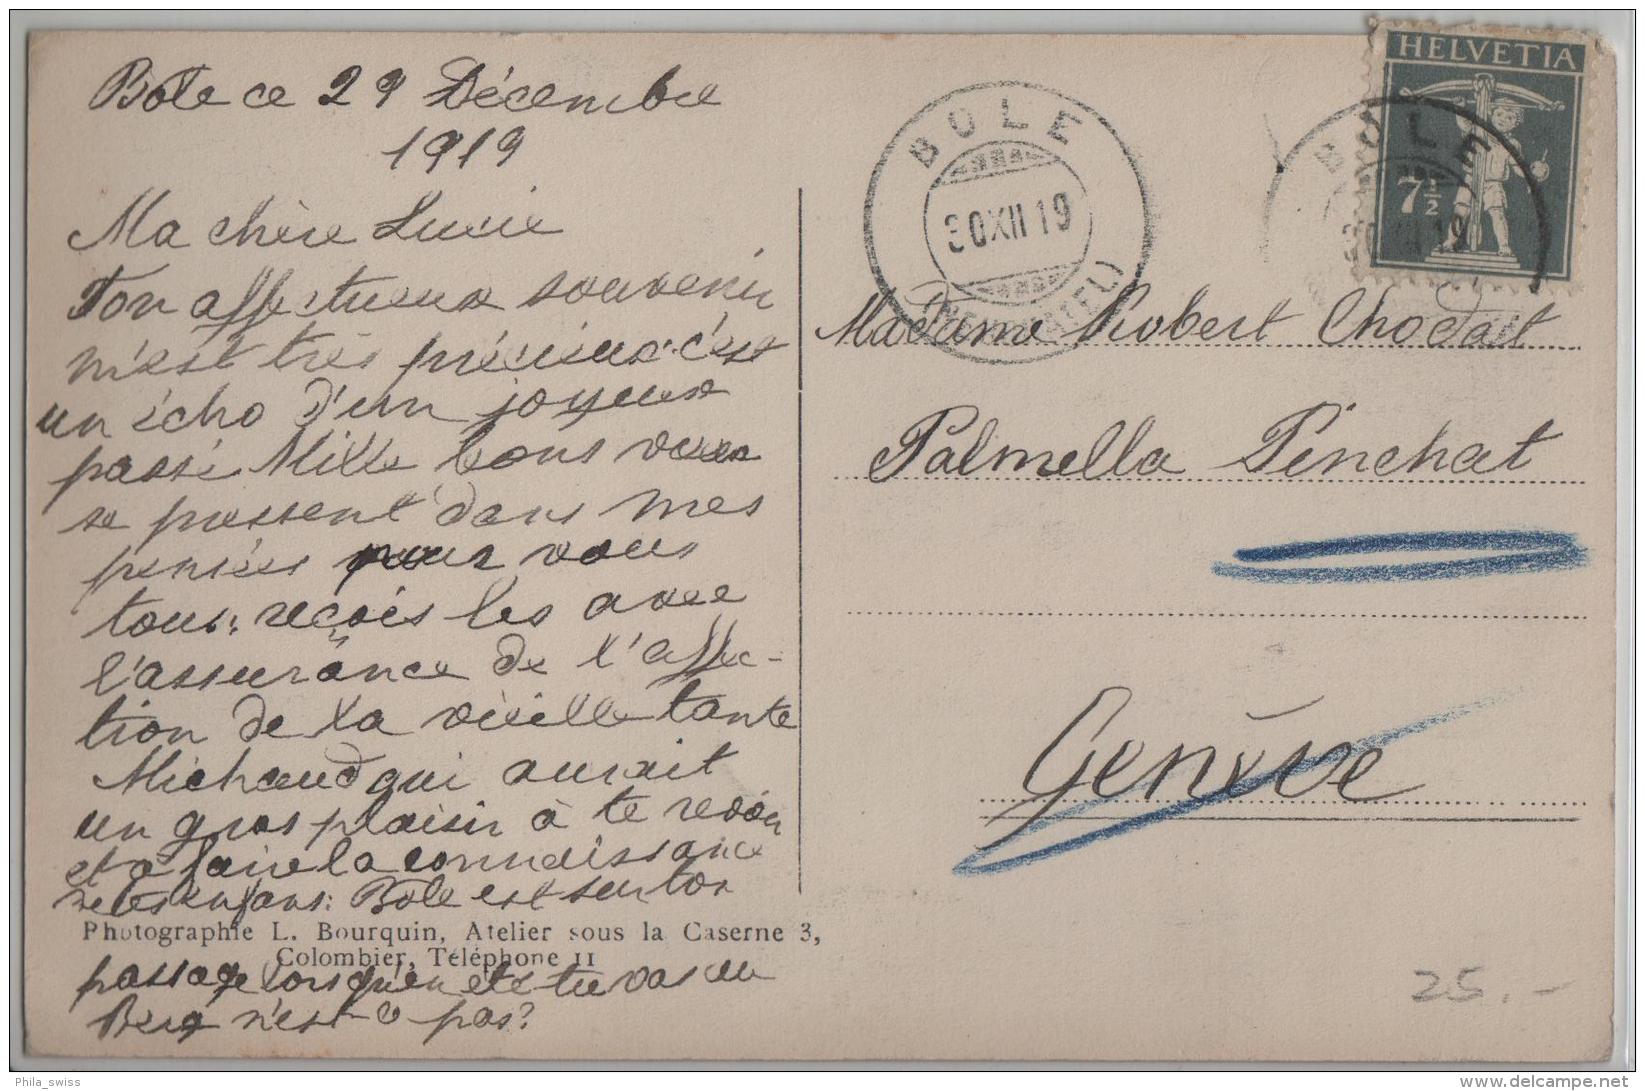 Bôle ce 29 Décembre
1919
Ma chère Lucie
Ton affectueux souvenir
m'est très précieux c'est
un écho d'un joyeux
passé Mille bons vœux
se pressent dans mes
pensées pour vous
tous: reçois les avec
l'assurance de l'affec-
tion de ta vieille tante
Michaud qui aurait
un gros plaisir à te revoir
et à faire la connaissance
de tes enfans: Bôle est sur ton
Photographie L. Bourquin, Atelier sous la Caserne 3,
Colombier, Téléphone 11
passage lorsqu'en été tu vas au
n'est-ce pas?
HELVETIA
7½
BOLE
30 XII 19
(NEUCHATEL)
BOLE
30 XII 19
Madame Robert Chodat
Palmella Pinchat
Genève
25.-
Phila_swiss
www.delcampe.net